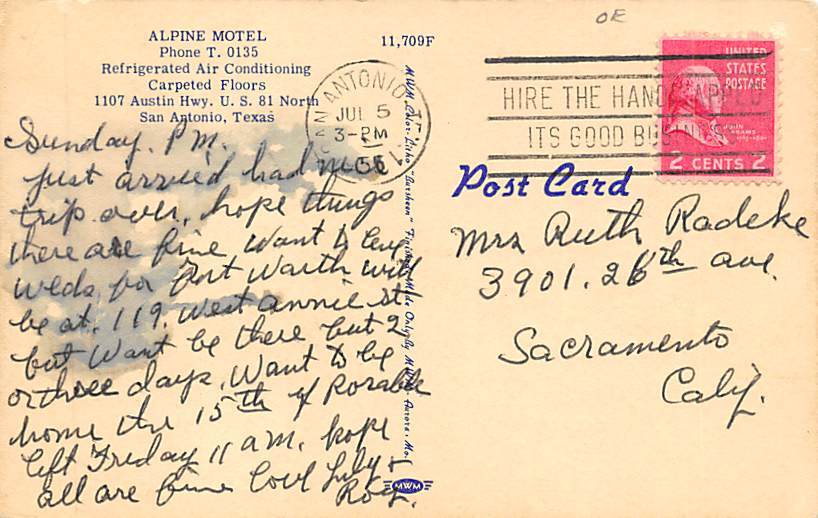 ALPINE MOTEL
Phone T. 0135
Refrigerated Air Conditioning
Carpeted Floors
1107 Austin Hwy. U. S. 81 North
San Antonio, Texas
11,709F
SAN ANTONIO, TEX.
JUL 5
3-PM
HIRE THE HANDICAPPED
ITS GOOD BUSINESS
UNITED
STATES
POSTAGE
JOHN
ADAMS
2 CENTS 2
Post Card
Sunday. P.M.
just arrived had nice
trip over, hope things
there are fine Want to leave
Weds, for Fort Worth will
be at. 119. West Annie st.
but Wont be there but 2
or three days, Want to be
home the 15th if
left Friday 11 am. hope
all are fine Love Lily &
Roy.
Mrs Ruth Radeke
3901. 26th ave.
Sacramento
Calif.
MWM Color-Litho "Larsheen" Finish Made Only By MWM Aurora, Mo.
MWM